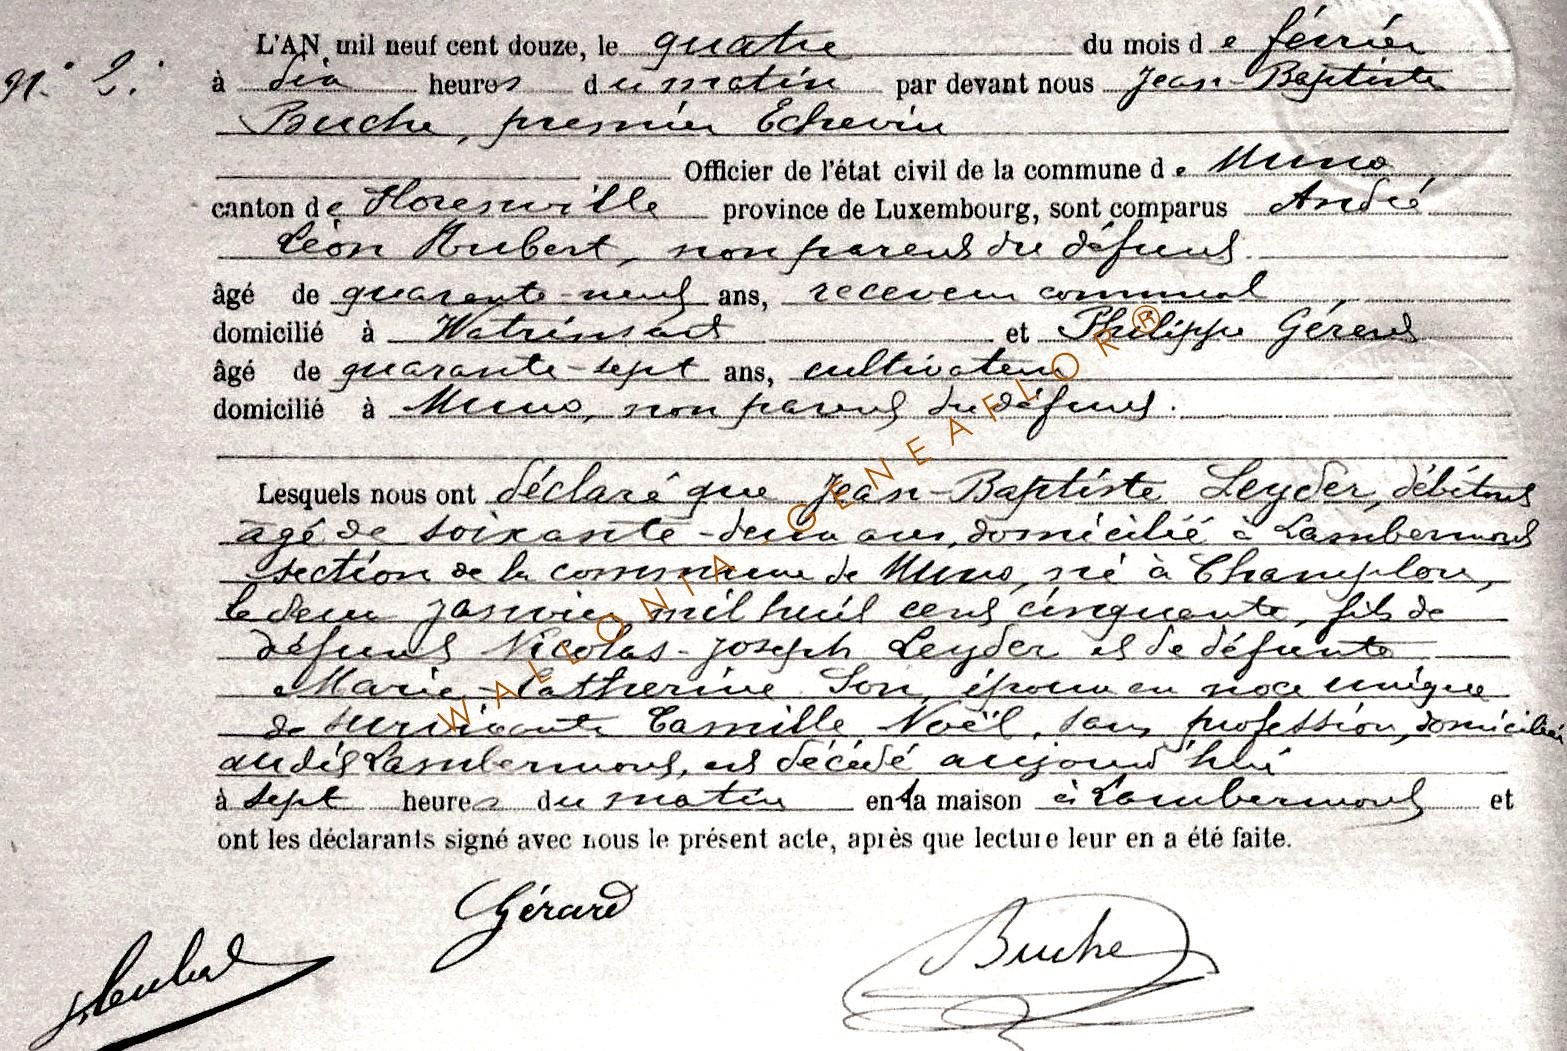 L'AN mil neuf cent douze, le quatre du mois de février
N° 2. à dix heures du matin par devant nous Jean-Baptiste
Buche, premier Echevin
Officier de l'état civil de la commune de Muno
canton de Florenville province de Luxembourg, sont comparus André
Léon Hubert, non parent du défunt.
âgé de quarante-neuf ans, receveur communal,
domicilié à Watrinsart et Philippe Gérard
âgé de quarante-sept ans, cultivateur
domicilié à Muno, non parent du défunt.
Lesquels nous ont déclaré que Jean-Baptiste Leyder, débitant
âgé de soixante-deux ans, domicilié à Lambermont
section de la commune de Muno, né à Champlon,
le deux janvier mil huit cent cinquante, fils de
défunt Nicolas-Joseph Leyder et de défunte
Marie-Catherine Son, époux en noce unique
de survivante Camille Noël, sans profession, domiciliée
audit Lambermont, est décédé aujourd'hui
à sept heures du matin en la maison à Lambermont et
ont les déclarants signé avec nous le présent acte, après que lecture leur en a été faite.
Gérard
Hubert
Buche
WALLONIA GENEAFLOR®